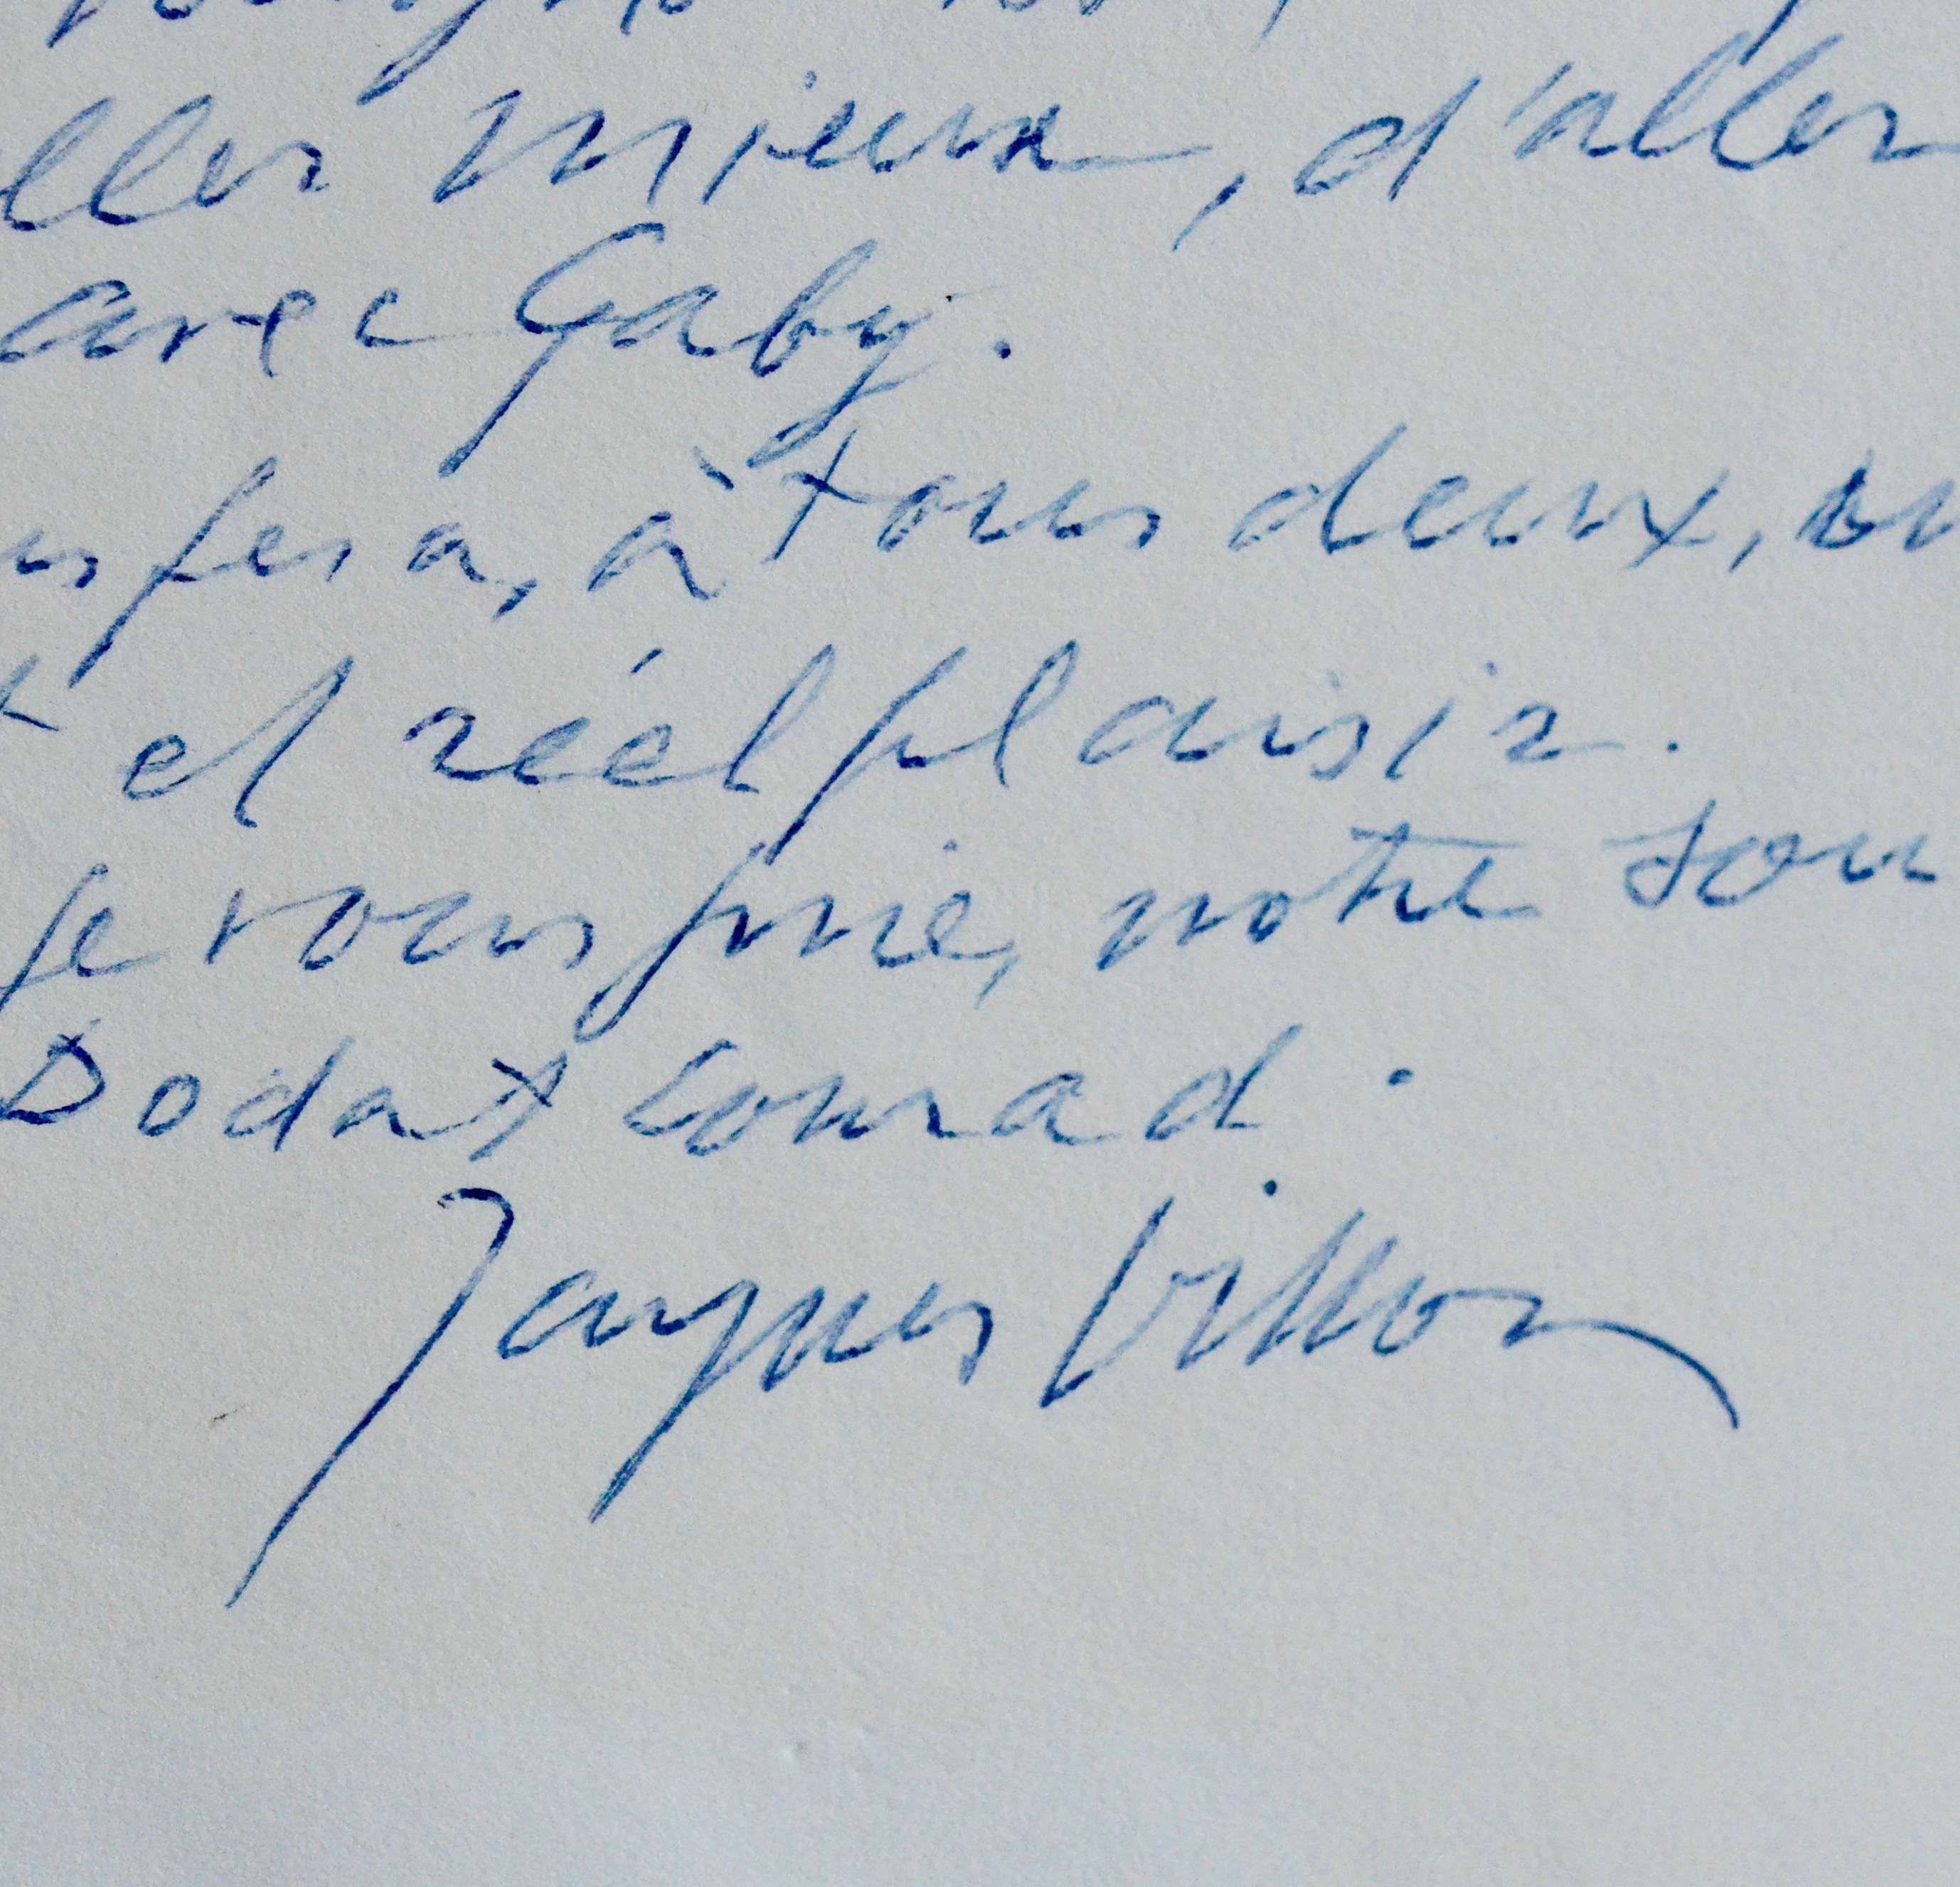 ller mieux, d'aller
avec Gaby.
us fera, à tous deux, u
t et réel plaisir.
je vous prie, notre sou
Dodat Conrad.
Jacques Villon